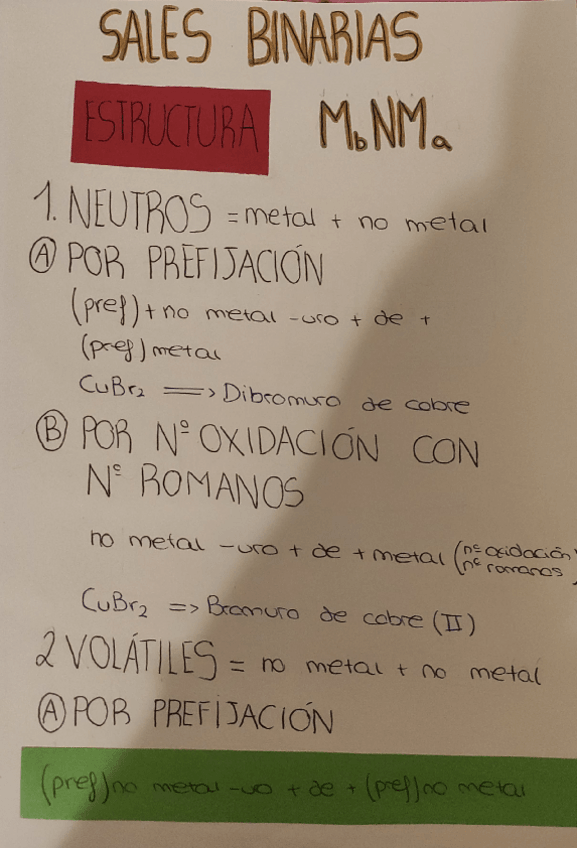 SALES BINARIAS
ESTRUCTURA MbNMa
1. NEUTROS = metal + no metal
Ⓐ POR PREFIJACIÓN
(pref) + no metal -uro + de +
(pref) metal
CuBr₂ ⟹ Dibromuro de cobre
Ⓑ POR Nº OXIDACIÓN CON
Nº ROMANOS
no metal -uro + de + metal (nº oxidación
nº romanos)
CuBr₂ => Bromuro de cobre (II)
2 VOLÁTILES = no metal + no metal
Ⓐ POR PREFIJACIÓN
(pref) no metal -uo + de + (pref) no metal